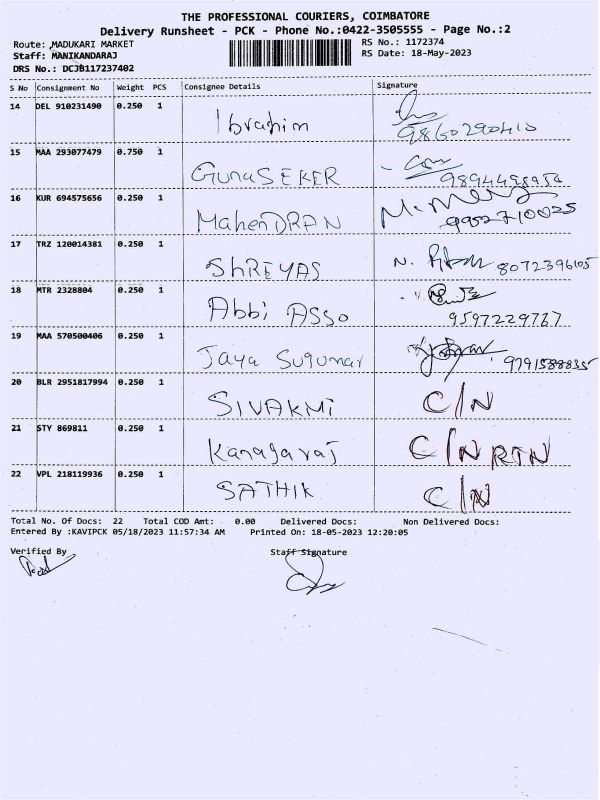 THE PROFESSIONAL COURIERS, COIMBATORE
Delivery Runsheet - PCK - Phone No.:0422-3505555 - Page No.:2
Route: MADUKARI MARKET RS No.: 1172374
Staff: MANIKANDARAJ RS Date: 18-May-2023
DRS No.: DCJB117237402
S No Consignment No Weight PCS Consignee Details Signature
14 DEL 910231490 0.250 1
Ibrahim 9860290410
15 MAA 293077479 0.750 1
GunaSEKER
16 KUR 694575656 0.250 1
MahenDRAN 9952710025
17 TRZ 120014381 0.250 1
ShREYAS 8072396105
18 MTR 2328804 0.250 1
Abbi ASSO 9597229767
19 MAA 570500406 0.250 1
Jaya Sugumar 9791588835
20 BLR 2951817994 0.250 1
SIVAKMI C/N
21 STY 869811 0.250 1
Kanagaraj C/N RTN
22 VPL 218119936 0.250 1
SATHIK C/N
Total No. Of Docs: 22 Total COD Amt: 0.00 Delivered Docs: Non Delivered Docs:
Entered By :KAVIPCK 05/18/2023 11:57:34 AM Printed On: 18-05-2023 12:20:05
Verified By Staff Signature